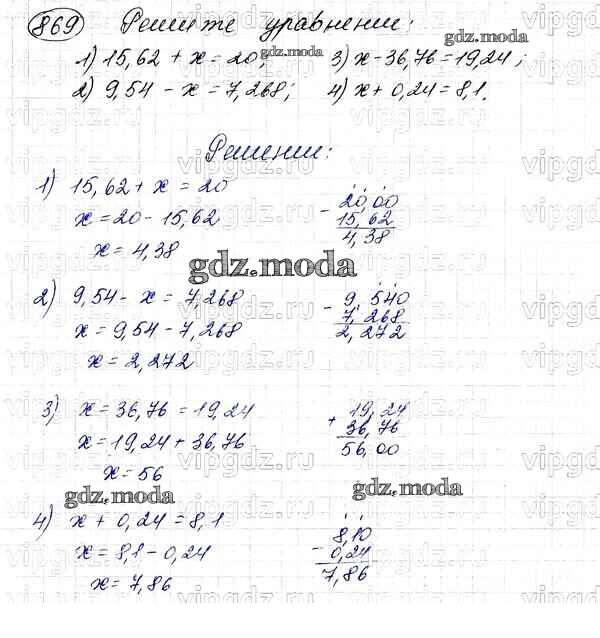 869 Решите уравнении:
1) 15,62 + x = 20; 3) x - 36,76 = 19,24;
2) 9,54 - x = 7,268; 4) x + 0,24 = 8,1.
gdz.moda
Решении:
1) 15,62 + x = 20
x = 20 - 15,62
x = 4,38
- 20,00
15,62
4,38
gdz.moda
2) 9,54 - x = 7,268
x = 9,54 - 7,268
x = 2,272
- 9,540
7,268
2,272
3) x = 36,76 = 19,24
x = 19,24 + 36,76
x = 56
+ 19,24
36,76
56,00
gdz.moda
gdz.moda
4) x + 0,24 = 8,1
x = 8,1 - 0,24
x = 7,86
- 8,10
0,24
7,86
vipgdz.ru